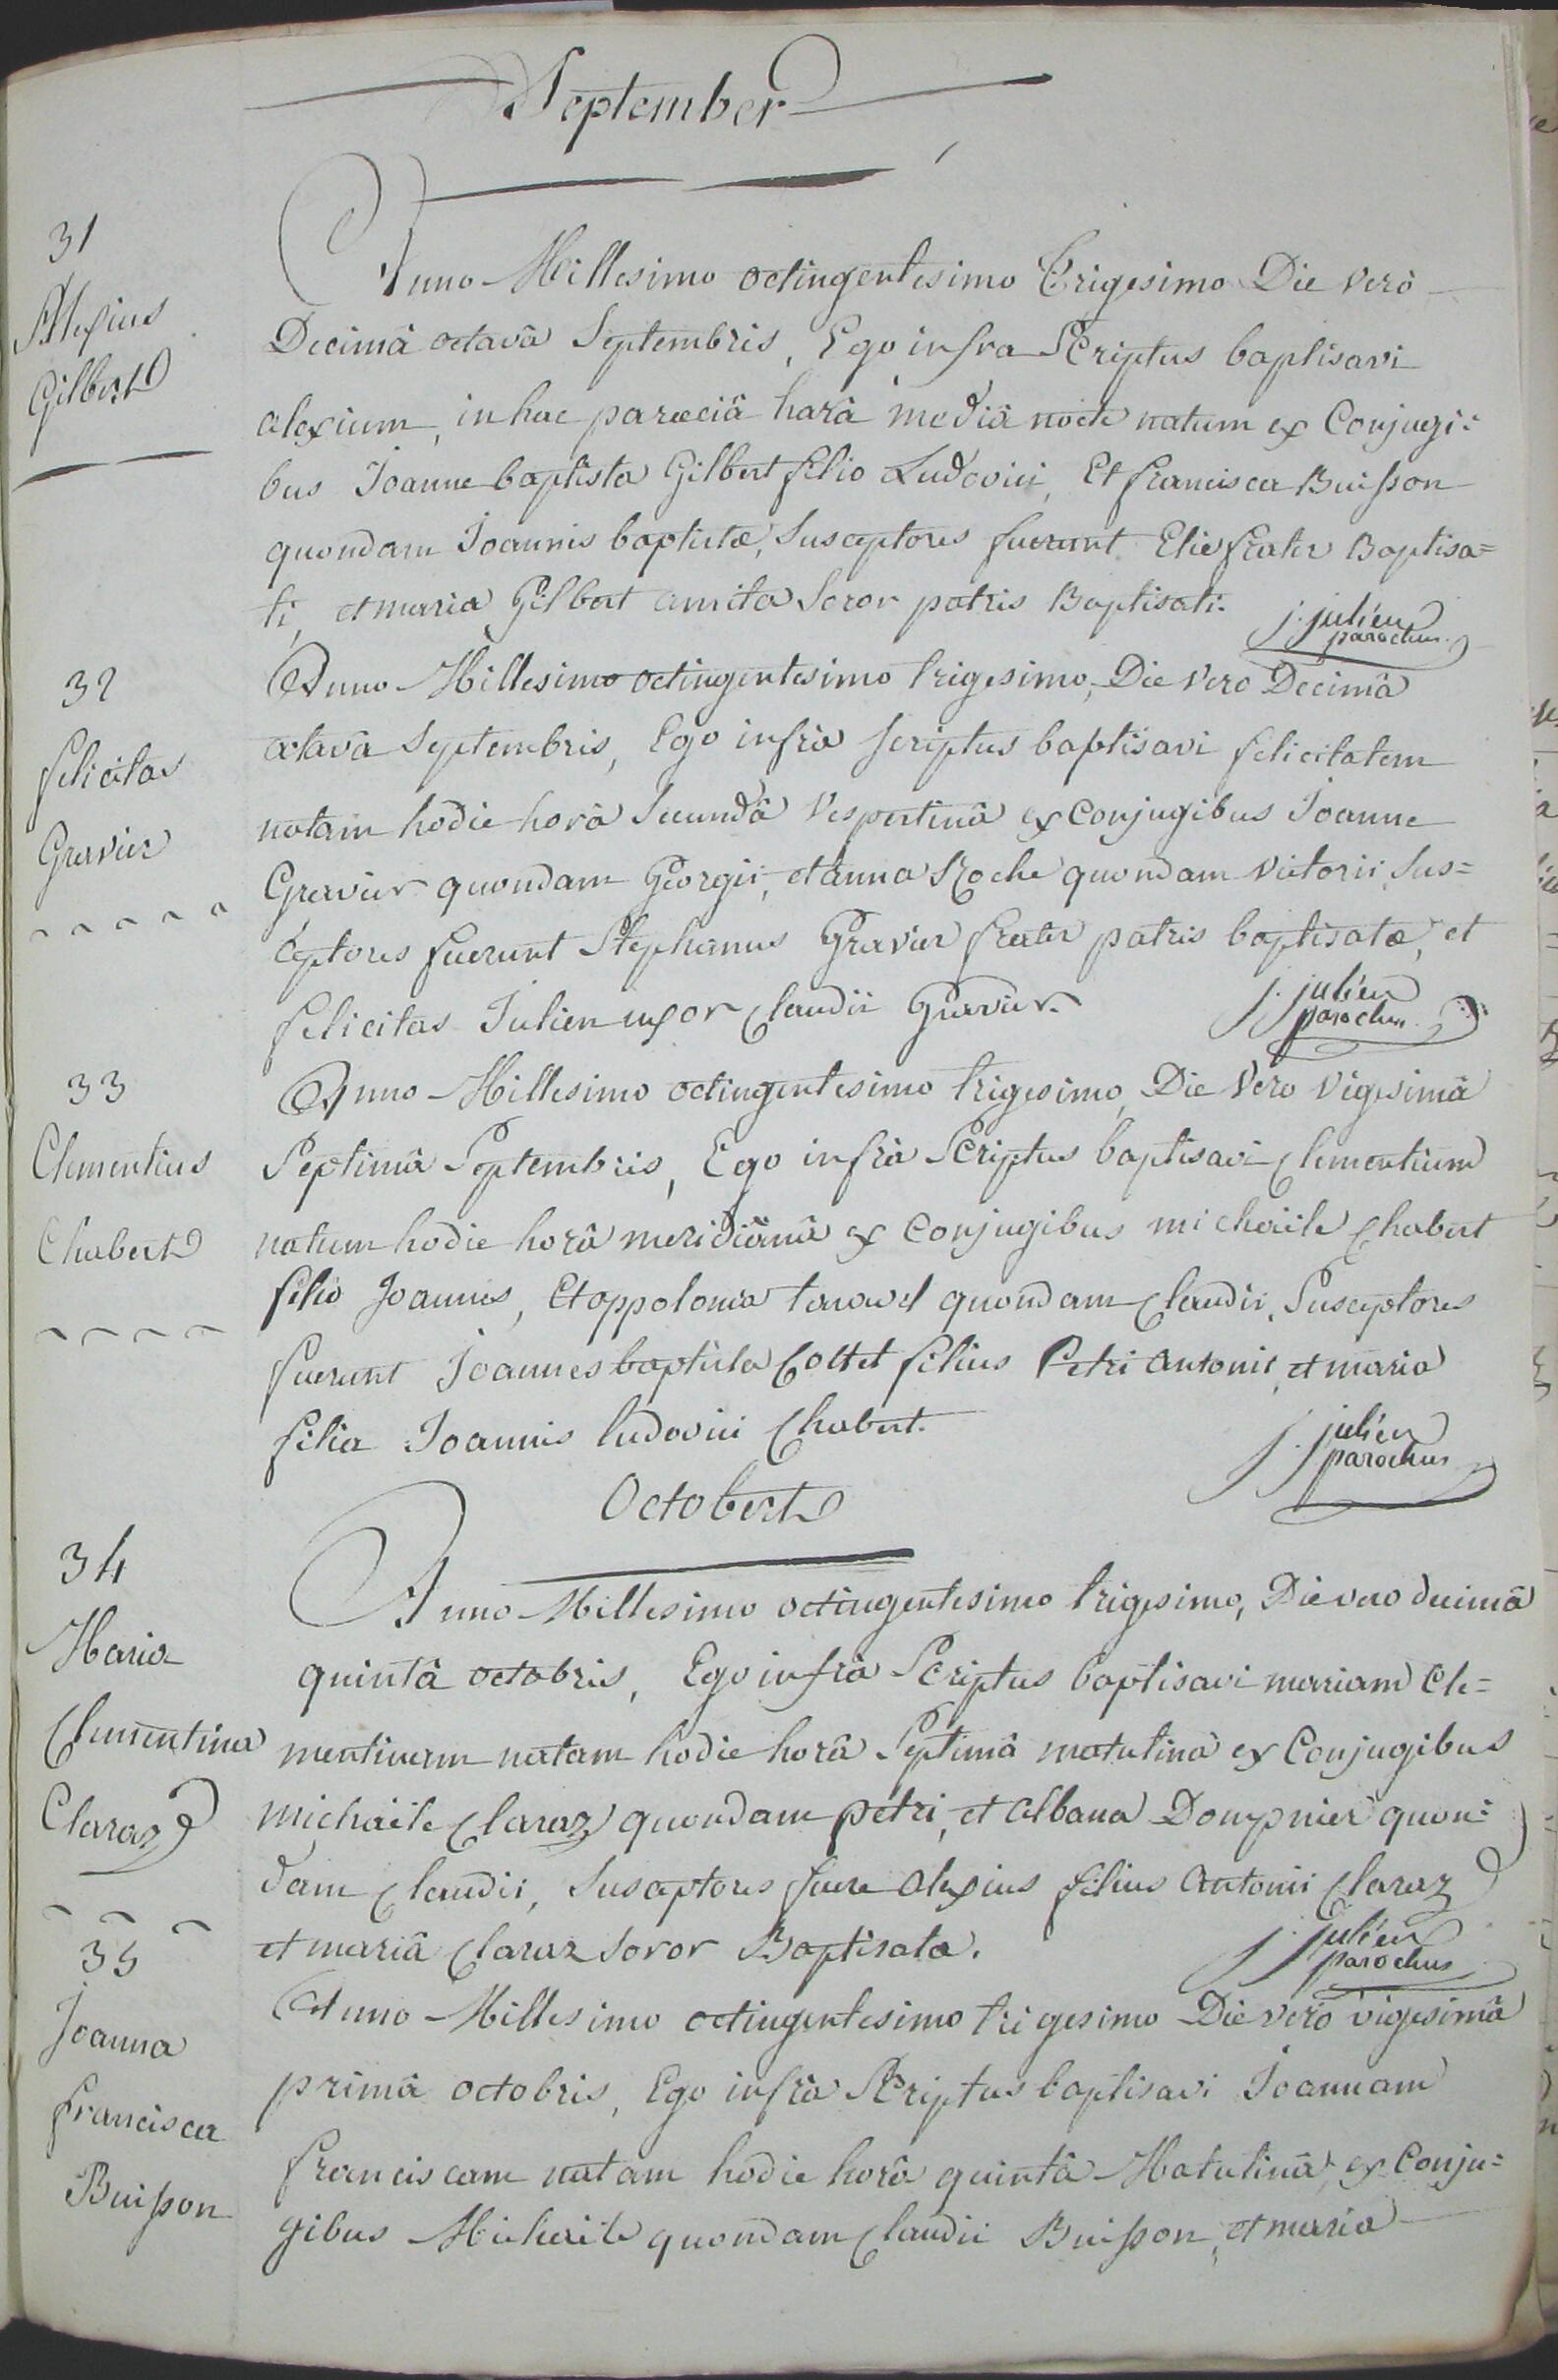 September
31
Alexius
Gilbert
Anno Millesimo octingentesimo Trigesimo Die Verò
Decimâ octavâ Septembris, Ego infra Scriptus baptisavi
alexium, in hac parœciâ harâ mediâ nocte natum ex Conjugi=
bus Joanne baptista Gilbert filio Ludovici, Et francisca Buisson
quondam Joannis baptistæ, Susceptores fuerunt Elie frater Baptisa=
ti, et maria Gilbert amita Soror patris Baptisati.
j. julien
parochus.
32
felicitas
Gravier
Anno Millesimo octingentesimo trigesimo, Die Vero Decimâ
octavâ Septembris, Ego infrà scriptus baptisavi felicitatem
natam hodie horâ Secundâ Vespertinâ ex Conjugibus Joanne
Gravier quondam Georgii, et anna Roche quondam Victorii, Sus=
ceptores fuerunt Stephanus Gravier frater patris baptisatæ, et
felicitas Julien uxor Claudii Gravier.
j. julien
parochus.
33
Clementius
Chabert
Anno Millesimo octingentesimo trigesimo, Die Vero Vigesimâ
Septimâ Septembris, Ego infrà Scriptus baptisavi Clementium
natum hodie horâ meridianâ ex Conjugibus michaële Chabert
filio Joannis, Et appolonia quondam Claudii, Susceptores
fuerunt Joannes baptista Collet filius Petri antonii, et maria
filia Joannis ludovici Chabert.
j. julien
parochus
Octobert
34
Maria
Clementina
Claraz
Anno Millesimo octingentesimo trigesimo, Die vero decimâ
quintâ octobris, Ego infrà Scriptus baptisavi mariam Cle=
mentinam natam hodie horâ Septimâ matutinâ ex Conjugibus
michaële Claraz quondam petri, et albana Dompnier quon=
dam Claudii, Susceptores fuere alexius filius antonii Claraz
et mariâ Claraz Soror Baptisata.
j. julien
parochus
35
Joanna
francisca
Buisson
Anno Millesimo octingentesimo trigesimo Die verò vigesimâ
primâ octobris, Ego infrà Scriptus baptisavi Joannam
franciscam natam hodie horâ quintâ Matutinâ, ex Conju=
gibus Michaële quondam Claudii Buisson, et maria